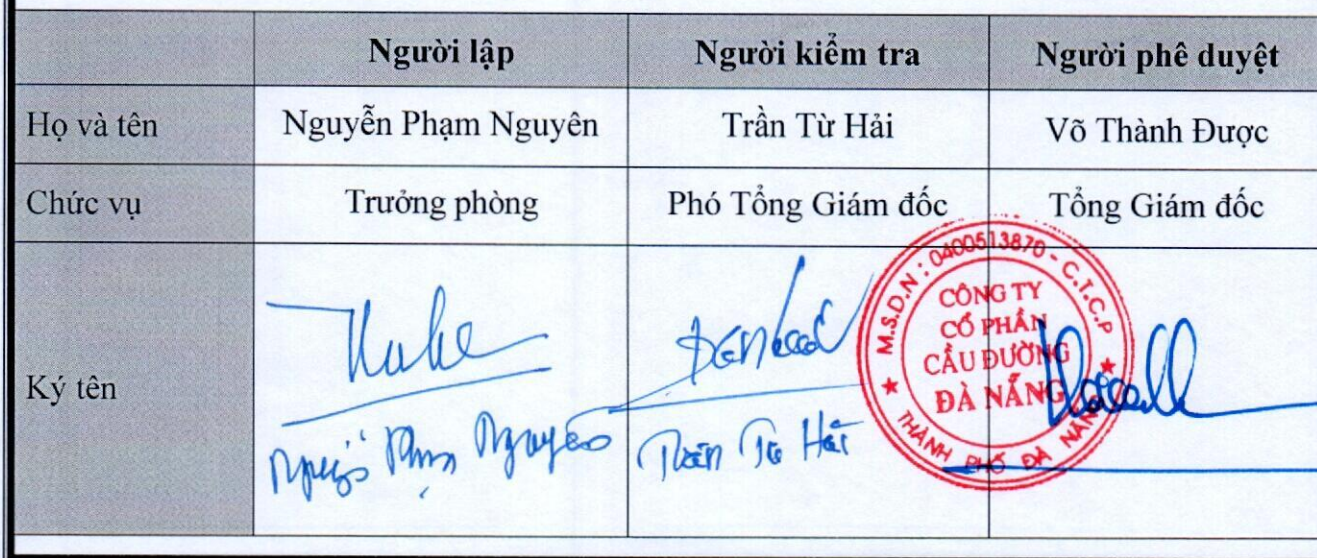 Người lập Người kiểm tra Người phê duyệt
Họ và tên Nguyễn Phạm Nguyên Trần Từ Hải Võ Thành Được
Chức vụ Trưởng phòng Phó Tổng Giám đốc Tổng Giám đốc
Ký tên
Nguyễn Phạm Nguyên Trần Từ Hải
M.S.D.N : 0400513870 - C.T.C.P
CÔNG TY
CỔ PHẦN
CẦU ĐƯỜNG
ĐÀ NẴNG
THÀNH PHỐ ĐÀ NẴNG